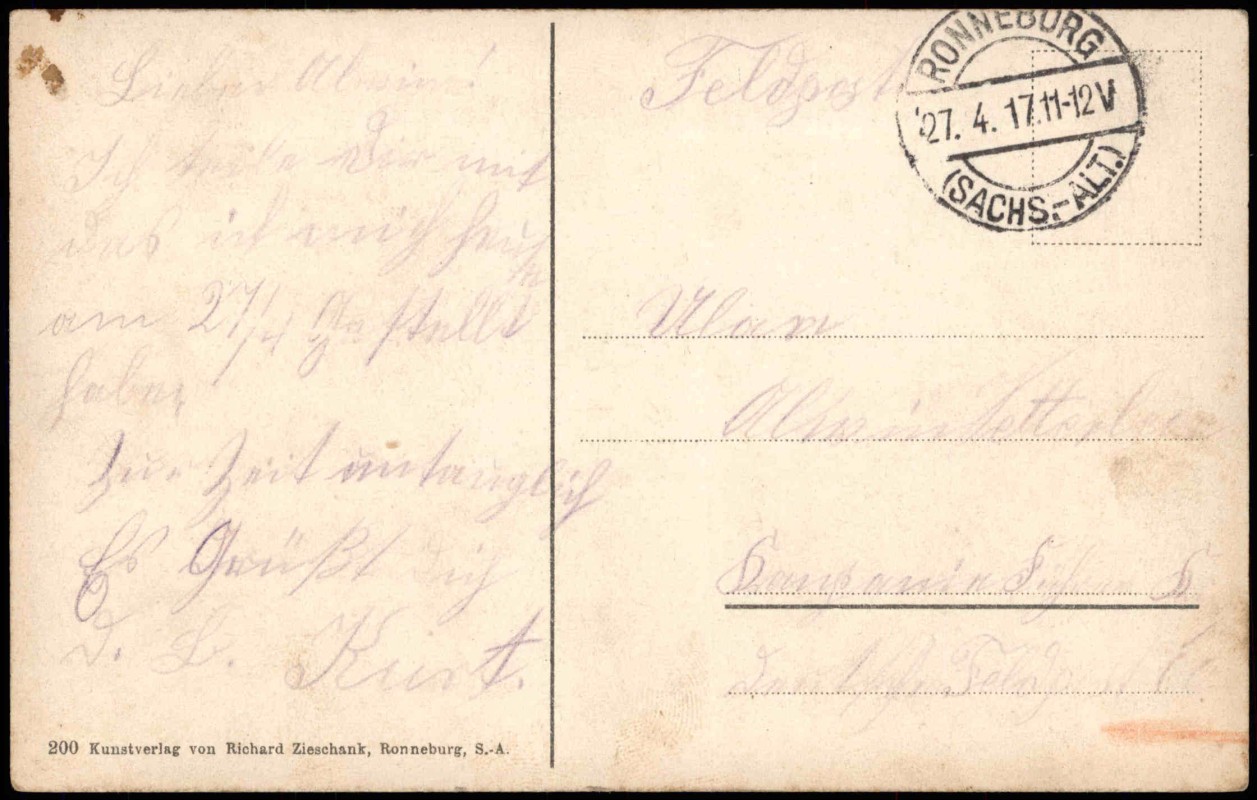 Lieber Alwin!
Ich teile Dir mit
das ich mich heu
te
am 27/4 Gestellt
habe,
Zur Zeit untauglich
Es Grüßt dich
d. B. Kurt.
200 Kunstverlag von Richard Zieschank, Ronneburg, S.-A.
Feldpost
RONNEBURG
27. 4. 17.11-12V
(SACHS.-ALT.)
Ulan
Alwin
Kompanie Führer
deutsche Feldpost